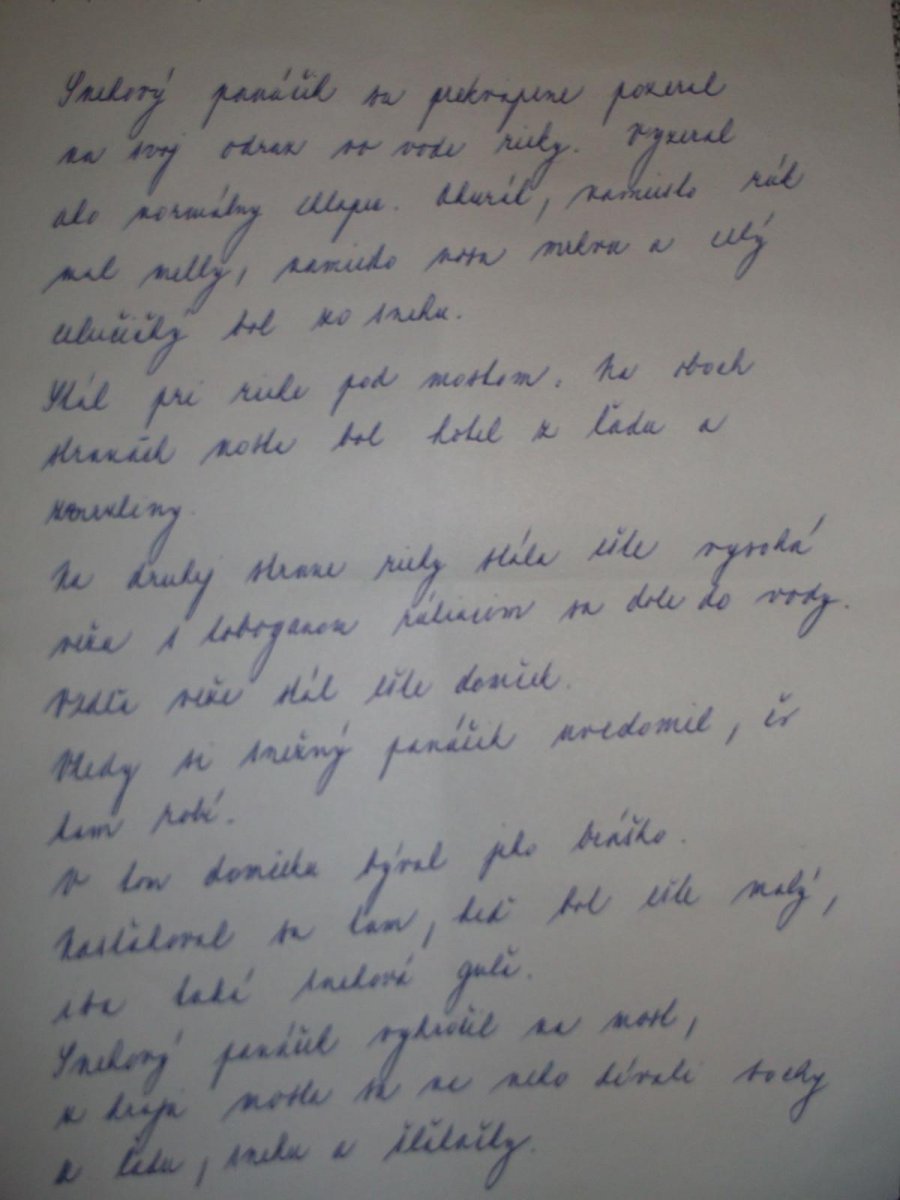 Snehový panáčik sa prekvapene pozeral
na svoj odraz vo vode rieky. Vyzeral
ako normálny chlapec. Akurát, namiesto rúk
mal metly, namiesto nosa mrkva a celý
celučičký bol zo snehu.
Stál pri rieke pod mostom. Na oboch
stranách mosta bol hotel z ľadu a
zmrzliny.
Na druhej strane rieky stála ešte vysoká
veža s toboganom rútiacim sa dole do vody.
Vzdľa veže stál ešte domček.
Vtedy si snežný panáčik uvedomil, čo
tam robí.
V tom domčeku býval jeho braško.
Nasťahoval sa tam, keď bol ešte malý,
iba taká snehová guľa.
Snehový panáčik vykročil na most,
z kraja mosta sa na neho dívali sochy
z ľadu, snehu a šľahačky.